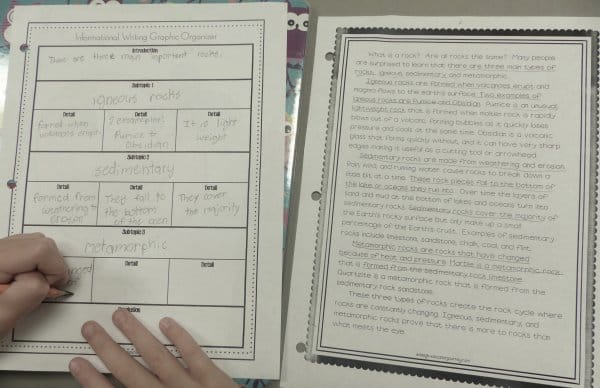 Informational Writing Graphic Organizer
Introduction
There are three main important rocks.
Subtopic 1
igneous rocks
Detail
Detail
Detail
formed when
volcanos erupt
2 examples
Pumice &
Obsidian
It is light
weight
Subtopic 2
sedimentary
Detail
Detail
Detail
formed from
weathering &
erosion
They fall to
the bottom
of the
They cover
the majority
Subtopic 3
Metamorphic
Detail
Detail
What is a rock? Are all rocks the same? Many people
are surprised to learn that there are three main types of
rocks: igneous, sedimentary, and metamorphic.
Igneous rocks are formed when volcanoes erupt and
magma flows to the earth's surface. Two examples of
igneous rocks are Pumice and Obsidian. Pumice is an unusual,
lightweight rock that is formed when molten rock is rapidly
blown out of a volcano, forming bubbles as it quickly loses
pressure and cools at the same time. Obsidian is a volcanic
glass that forms quickly without, and it can have very sharp
edges making it useful as a cutting tool or arrowhead.
Sedimentary rocks are made from weathering and erosion.
Rain, wind, and running water cause rocks to break down a
little bit at a time. These rock pieces fall to the bottom of
the lake or oceans they run into. Over time the layers of
sand and mud at the bottom of lakes and oceans turn into
sedimentary rocks. Sedimentary rocks cover the majority of
the Earth's rocky surface but only make up a small
percentage of the Earth's crust. Examples of sedimentary
rocks include limestone, sandstone, chalk, coal, and flint.
Metamorphic rocks are rocks that have changed
because of heat and pressure. Marble is a metamorphic rock
that is formed from the sedimentary rock limestone.
Quartzite is a metamorphic rock that is formed from the
sedimentary rock sandstone.
These three types of rocks create the rock cycle where
rocks are constantly changing. Igneous, sedimentary, and
metamorphic rocks prove that there is more to rocks than
what meets the eye.